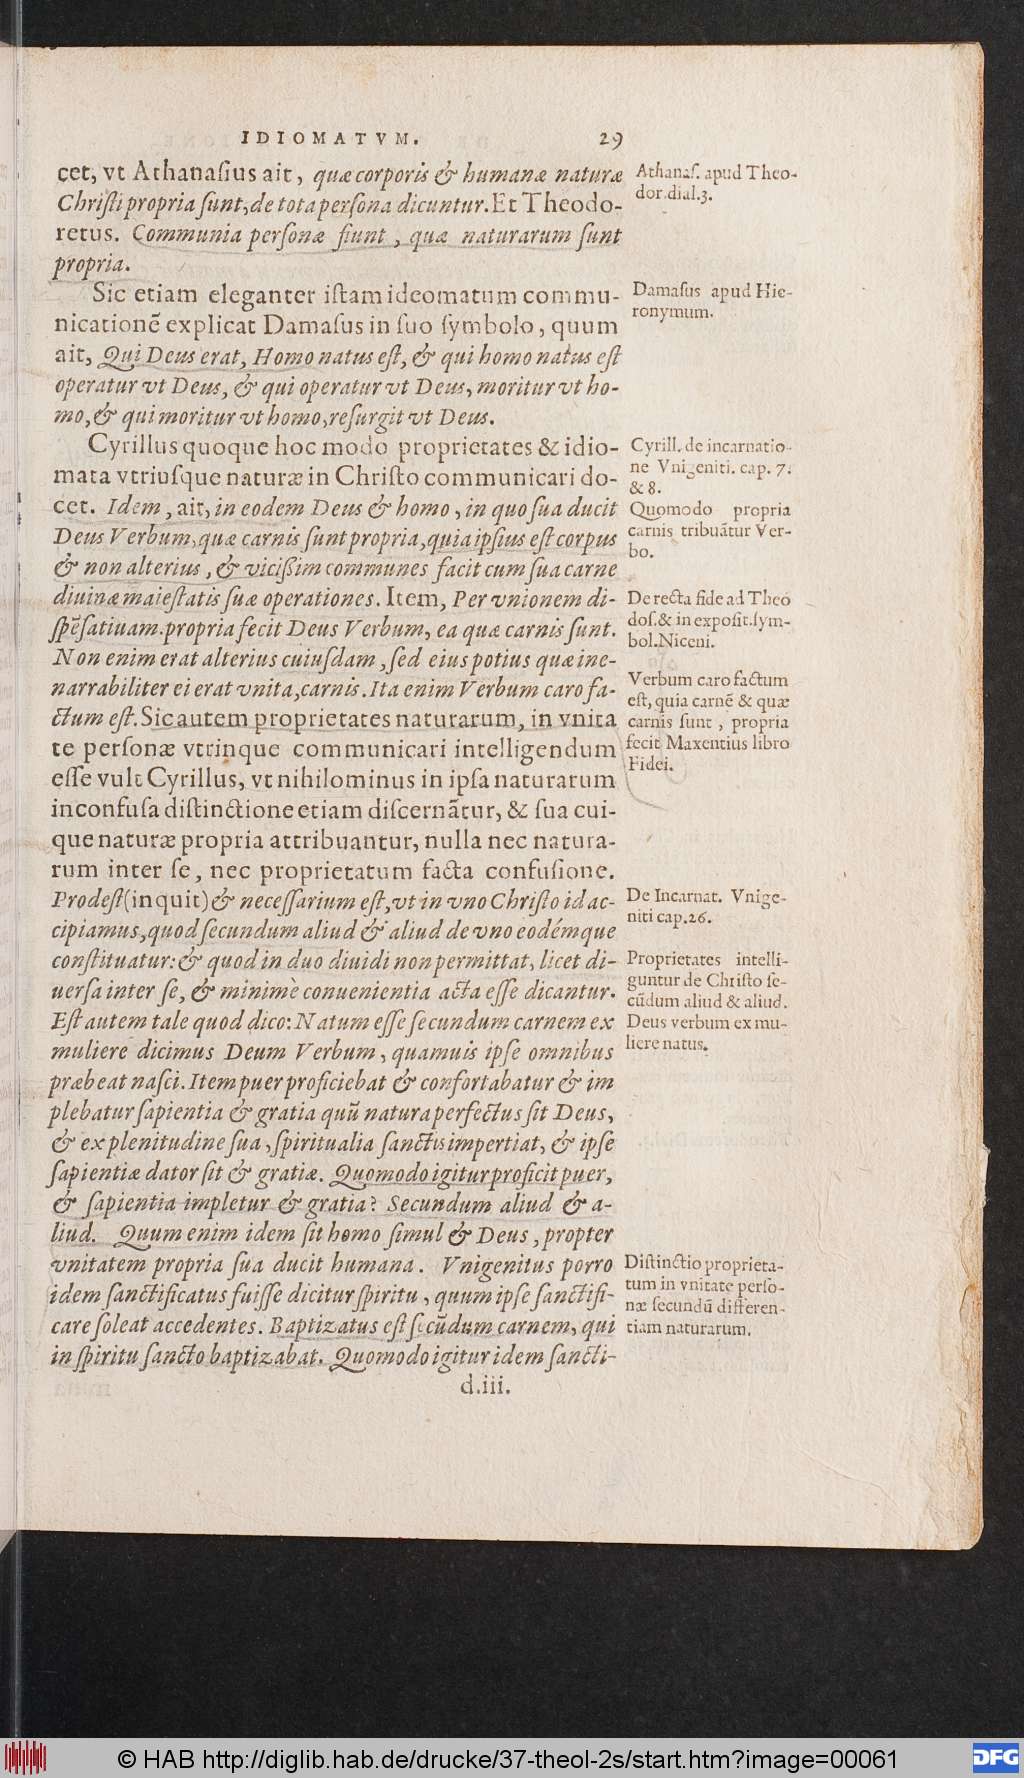 IDIOMATVM. 29
cet, vt Athanaſius ait, quæ corporis & humanæ naturæ
Chriſti propria ſunt, de tota perſona dicuntur. Et Theodo-
retus. Communia perſonæ fiunt, quæ naturarum ſunt
propria.
Sic etiam eleganter iſtam ideomatum commu-
nicationē explicat Damaſus in ſuo ſymbolo, quum
ait, Qui Deus erat, Homo natus eſt, & qui homo natus eſt
operatur vt Deus, & qui operatur vt Deus, moritur vt ho-
mo, & qui moritur vt homo, reſurgit vt Deus.
Cyrillus quoque hoc modo proprietates & idio-
mata vtriuſque naturæ in Chriſto communicari do-
cet. Idem, ait, in eodem Deus & homo, in quo ſua ducit
Deus Verbum, quæ carnis ſunt propria, quia ipſius eſt corpus
& non alterius, & viciſsim communes facit cum ſua carne
diuinæ maieſtatis ſuæ operationes. Item, Per vnionem di-
ſpēſatiuam. propria fecit Deus Verbum, ea quæ carnis ſunt.
Non enim erat alterius cuiuſdam, ſed eius potius quæ ine-
narrabiliter ei erat vnita, carnis. Ita enim Verbum caro fa-
ctum eſt. Sic autem proprietates naturarum, in vnita
te perſonæ vtrinque communicari intelligendum
eſſe vult Cyrillus, vt nihilominus in ipſa naturarum
inconfuſa diſtinctione etiam diſcernātur, & ſua cui-
que naturæ propria attribuantur, nulla nec natura-
rum inter ſe, nec proprietatum facta confuſione.
Prodeſt (inquit) & neceſſarium eſt, vt in vno Chriſto id ac-
cipiamus, quod ſecundum aliud & aliud de vno eodémque
conſtituatur: & quod in duo diuidi non permittat, licet di-
uerſa inter ſe, & minimè conuenientia acta eſſe dicantur.
Eſt autem tale quod dico: Natum eſſe ſecundum carnem ex
muliere dicimus Deum Verbum, quamuis ipſe omnibus
præbeat naſci. Item puer proficiebat & confortabatur & im
plebatur ſapientia & gratia quū natura perfectus ſit Deus,
& ex plenitudine ſua, ſpiritualia ſanctis impertiat, & ipſe
ſapientiæ dator ſit & gratiæ. Quomodo igitur proficit puer,
& ſapientia impletur & gratia? Secundum aliud & a-
liud. Quum enim idem ſit homo ſimul & Deus, propter
vnitatem propria ſua ducit humana. Vnigenitus porro
idem ſanctificatus fuiſſe dicitur ſpiritu, quum ipſe ſanctifi-
care ſoleat accedentes. Baptizatus eſt ſecūdum carnem, qui
in ſpiritu ſancto baptizabat. Quomodo igitur idem ſancti-
d.iii.
Athanaſ. apud Theo-
dor. dial. 3.
Damaſus apud Hie-
ronymum.
Cyrill. de incarnatio-
ne Vnigeniti. cap. 7.
& 8.
Quomodo propria
carnis tribuātur Ver-
bo.
De recta fide ad Theo
doſ. & in expoſit. ſym-
bol. Niceni.
Verbum caro factum
eſt, quia carnē & quæ
carnis ſunt, propria
fecit Maxentius libro
Fidei.
De Incarnat. Vnige-
niti cap. 26.
Proprietates intelli-
guntur de Chriſto ſe-
cūdum aliud & aliud.
Deus verbum ex mu-
liere natus.
Diſtinctio proprieta-
tum in vnitate perſo-
næ ſecundū differen-
tiam naturarum.
© HAB http://diglib.hab.de/drucke/37-theol-2s/start.htm?image=00061
DFG